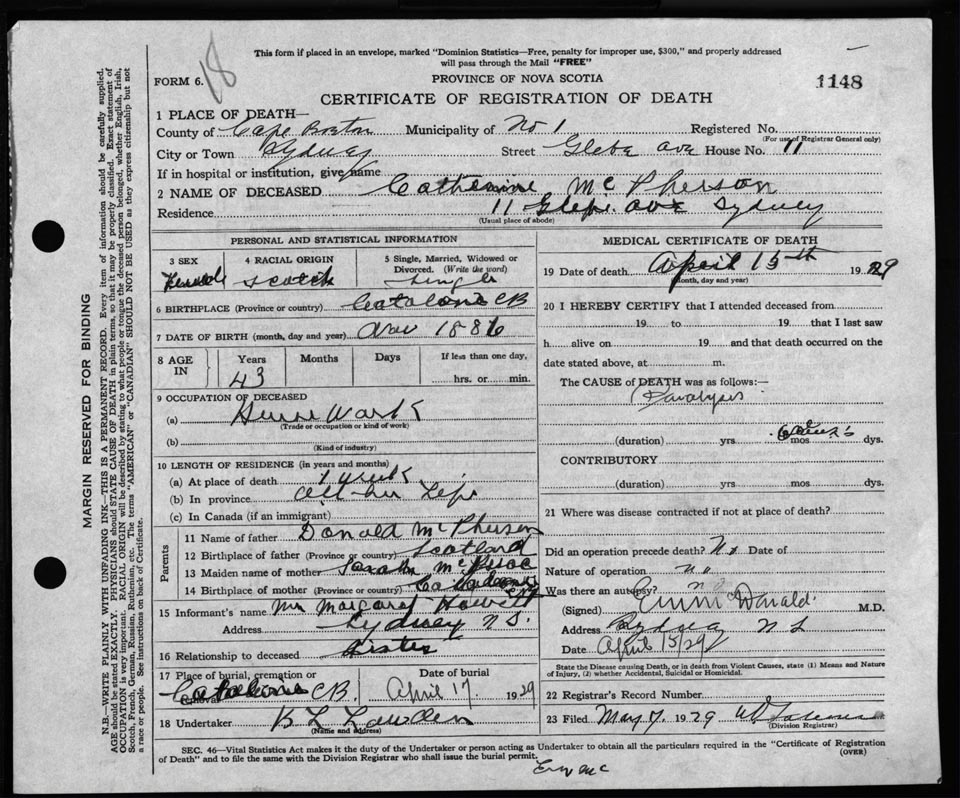 18
This form if placed in an envelope, marked "Dominion Statistics—Free, penalty for improper use, $300," and properly addressed
will pass through the Mail "FREE"
FORM 6.
PROVINCE OF NOVA SCOTIA
1148
CERTIFICATE OF REGISTRATION OF DEATH
1 PLACE OF DEATH—
County of Cape Breton Municipality of No 1 Registered No.
(For use of Registrar General only)
City or Town Sydney Street Glebe Ave House No. 11
If in hospital or institution, give name
2 NAME OF DECEASED Catherine McPherson
Residence 11 Glebe Ave Sydney
(Usual place of abode)
PERSONAL AND STATISTICAL INFORMATION
3 SEX 4 RACIAL ORIGIN 5 Single, Married, Widowed or
Divorced. (Write the word)
Female Scotch Single
6 BIRTHPLACE (Province or country) Catalone CB
7 DATE OF BIRTH (month, day and year) Nov 1886
8 AGE IN Years Months Days If less than one day,
43 hrs. or min.
9 OCCUPATION OF DECEASED
(a) House Work
(Trade or occupation or kind of work)
(b)
(Kind of industry)
10 LENGTH OF RESIDENCE (in years and months)
(a) At place of death 1 week
(b) In province all her Life
(c) In Canada (if an immigrant)
Parents
11 Name of father Donald McPherson
12 Birthplace of father (Province or country) Scotland
13 Maiden name of mother Sarah
14 Birthplace of mother (Province or country) Catalone
15 Informant's name Mrs Margaret
Address Sydney N.S.
16 Relationship to deceased Sister
17 Place of burial, cremation or removal Date of burial
Catalone CB. April 17 1929
18 Undertaker
(Name and address)
MEDICAL CERTIFICATE OF DEATH
19 Date of death April 15th 1929
(month, day and year)
20 I HEREBY CERTIFY that I attended deceased from
19 to 19 that I last saw
h alive on 19 and that death occurred on the
date stated above, at m.
The CAUSE of DEATH was as follows:—
Paralysis
(duration) yrs mos dys.
CONTRIBUTORY
(duration) yrs. mos. dys.
21 Where was disease contracted if not at place of death?
Did an operation precede death? No Date of
Nature of operation no
Was there an autopsy? no
(Signed) McDonald M.D.
Address Sydney N S
Date April 15/29
State the Disease causing Death, or in death from Violent Causes, state (1) Means and Nature
of Injury, (2) whether Accidental, Suicidal or Homicidal.
22 Registrar's Record Number
23 Filed May 7 1929
(Division Registrar)
SEC. 46—Vital Statistics Act makes it the duty of the Undertaker or person acting as Undertaker to obtain all the particulars required in the "Certificate of Registration
of Death" and to file the same with the Division Registrar who shall issue the burial permit.
(OVER)
MARGIN RESERVED FOR BINDING
N.B.—WRITE PLAINLY WITH UNFADING INK—THIS IS A PERMANENT RECORD. Every item of information should be carefully supplied.
AGE should be stated EXACTLY. PHYSICIANS should STATE CAUSE OF DEATH in plain terms, so that it may be properly classified. Exact statement of
OCCUPATION is very important. RACIAL ORIGIN will be described by stating to what people or tongue the deceased person belonged, whether English, Irish,
Scotch, French, German, Russian, Ruthenian, etc. The terms "AMERICAN" or "CANADIAN" SHOULD NOT BE USED as they express citizenship but not
a race or people. See instructions on back of Certificate.